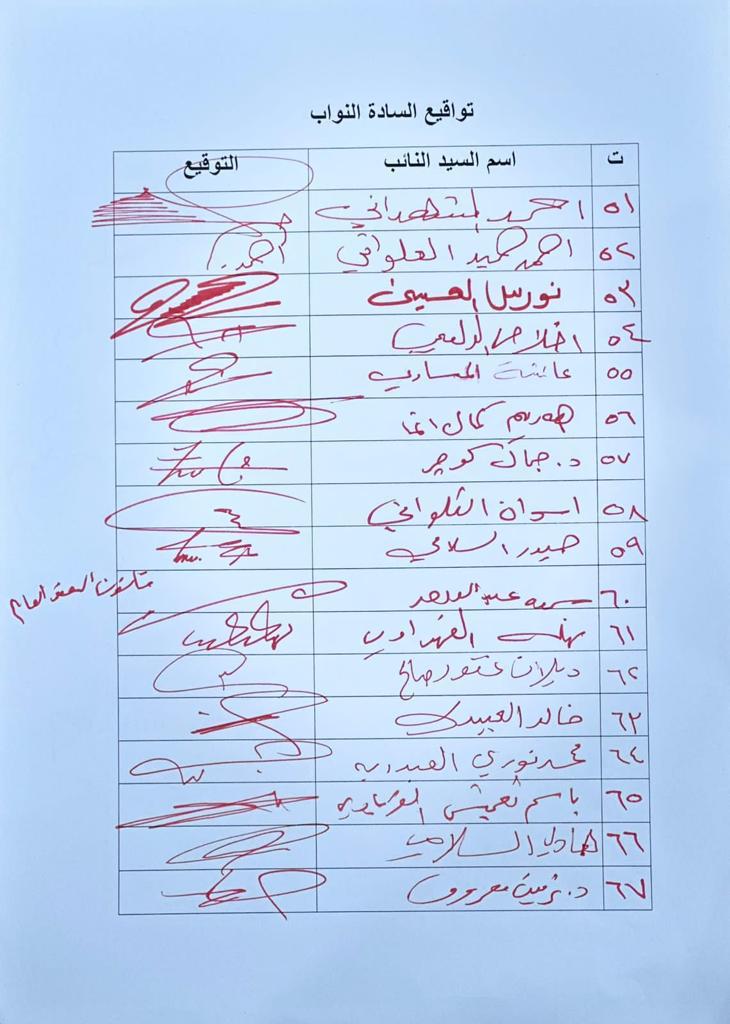 تواقيع السادة النواب
ت اسم السيد النائب التوقيع
٥١ احمد المشهداني
٥٢ احمد حميد العلواني احمد
٥٣ نورس العيسى
٥٤ اخلاص الدليمي
٥٥ عائشة المساري
٥٦ هەريم كمال اغا
٥٧ د. جمال كوجر
٥٨ اسوان الكلداني
٥٩ حيدر السلامي
٦٠ عبد
٦١ نهلة الفهداوي
٦٢ ديلان غفور صالح
٦٣ خالد العبيدي
٦٤ محمد نوري العبدربه
٦٥ باسم نغيمش الغريباوي
٦٦ هادي السلامي
٦٧ د. نرمين معروف